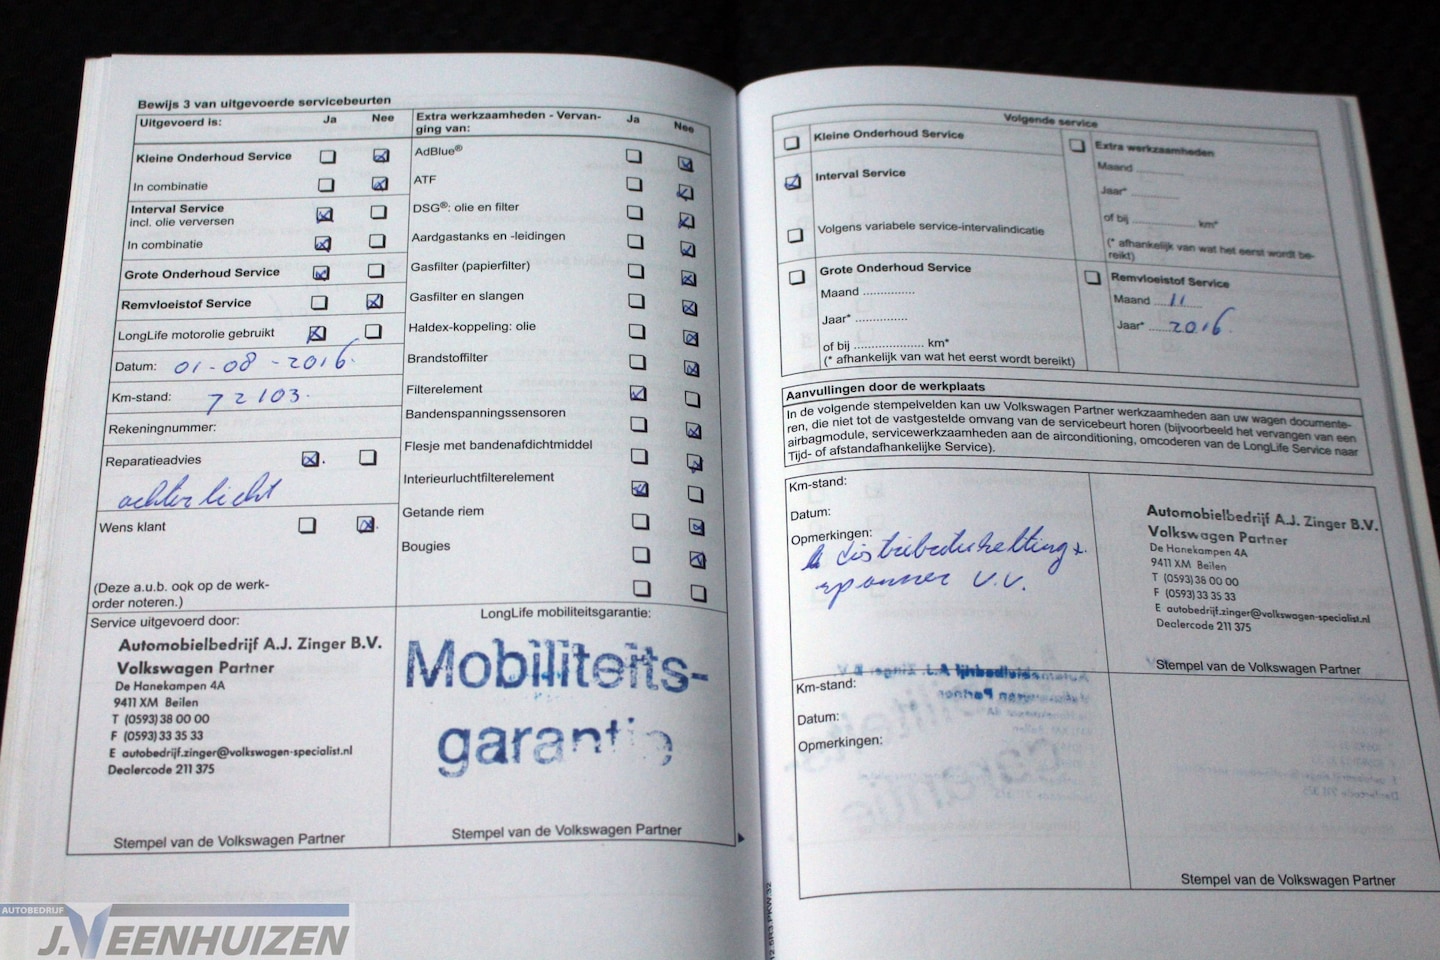 Bewijs 3 van uitgevoerde servicebeurten
Uitgevoerd is: Ja Nee
Kleine Onderhoud Service
In combinatie
Interval Service
incl. olie verversen
In combinatie
Grote Onderhoud Service
Remvloeistof Service
LongLife motorolie gebruikt
Datum: 01-08-2016.
Km-stand: 72103.
Rekeningnummer:
Reparatieadvies
achterlicht
Wens klant
(Deze a.u.b. ook op de werk-
order noteren.)
Extra werkzaamheden - Vervan-
ging van: Ja Nee
AdBlue®
ATF
DSG®: olie en filter
Aardgastanks en -leidingen
Gasfilter (papierfilter)
Gasfilter en slangen
Haldex-koppeling: olie
Brandstoffilter
Filterelement
Bandenspanningssensoren
Flesje met bandenafdichtmiddel
Interieurluchtfilterelement
Getande riem
Bougies
Service uitgevoerd door:
Automobielbedrijf A.J. Zinger B.V.
Volkswagen Partner
De Hanekampen 4A
9411 XM Beilen
T (0593) 38 00 00
F (0593) 33 35 33
E autobedrijf.zinger@volkswagen-specialist.nl
Dealercode 211 375
Stempel van de Volkswagen Partner
LongLife mobiliteitsgarantie:
Mobiliteits-
garantie
Stempel van de Volkswagen Partner
Volgende service
Kleine Onderhoud Service
Interval Service
Volgens variabele service-intervalindicatie
Grote Onderhoud Service
Maand ...............
Jaar* ...............
of bij .................... km*
(* afhankelijk van wat het eerst wordt bereikt)
Extra werkzaamheden
Maand ...............
Jaar* ...............
of bij .................... km*
(* afhankelijk van wat het eerst wordt be-
reikt)
Remvloeistof Service
Maand 11
Jaar* 2016.
Aanvullingen door de werkplaats
In de volgende stempelvelden kan uw Volkswagen Partner werkzaamheden aan uw wagen documente-
ren, die niet tot de vastgestelde omvang van de servicebeurt horen (bijvoorbeeld het vervangen van een
airbagmodule, servicewerkzaamheden aan de airconditioning, omcoderen van de LongLife Service naar
Tijd- of afstandafhankelijke Service).
Km-stand:
Datum:
Opmerkingen:
distributieketting +
spanner v.v.
Automobielbedrijf A.J. Zinger B.V.
Volkswagen Partner
De Hanekampen 4A
9411 XM Beilen
T (0593) 38 00 00
F (0593) 33 35 33
E autobedrijf.zinger@volkswagen-specialist.nl
Dealercode 211 375
Stempel van de Volkswagen Partner
Km-stand:
Datum:
Opmerkingen:
Stempel van de Volkswagen Partner
AUTOBEDRIJF
J.VEENHUIZEN